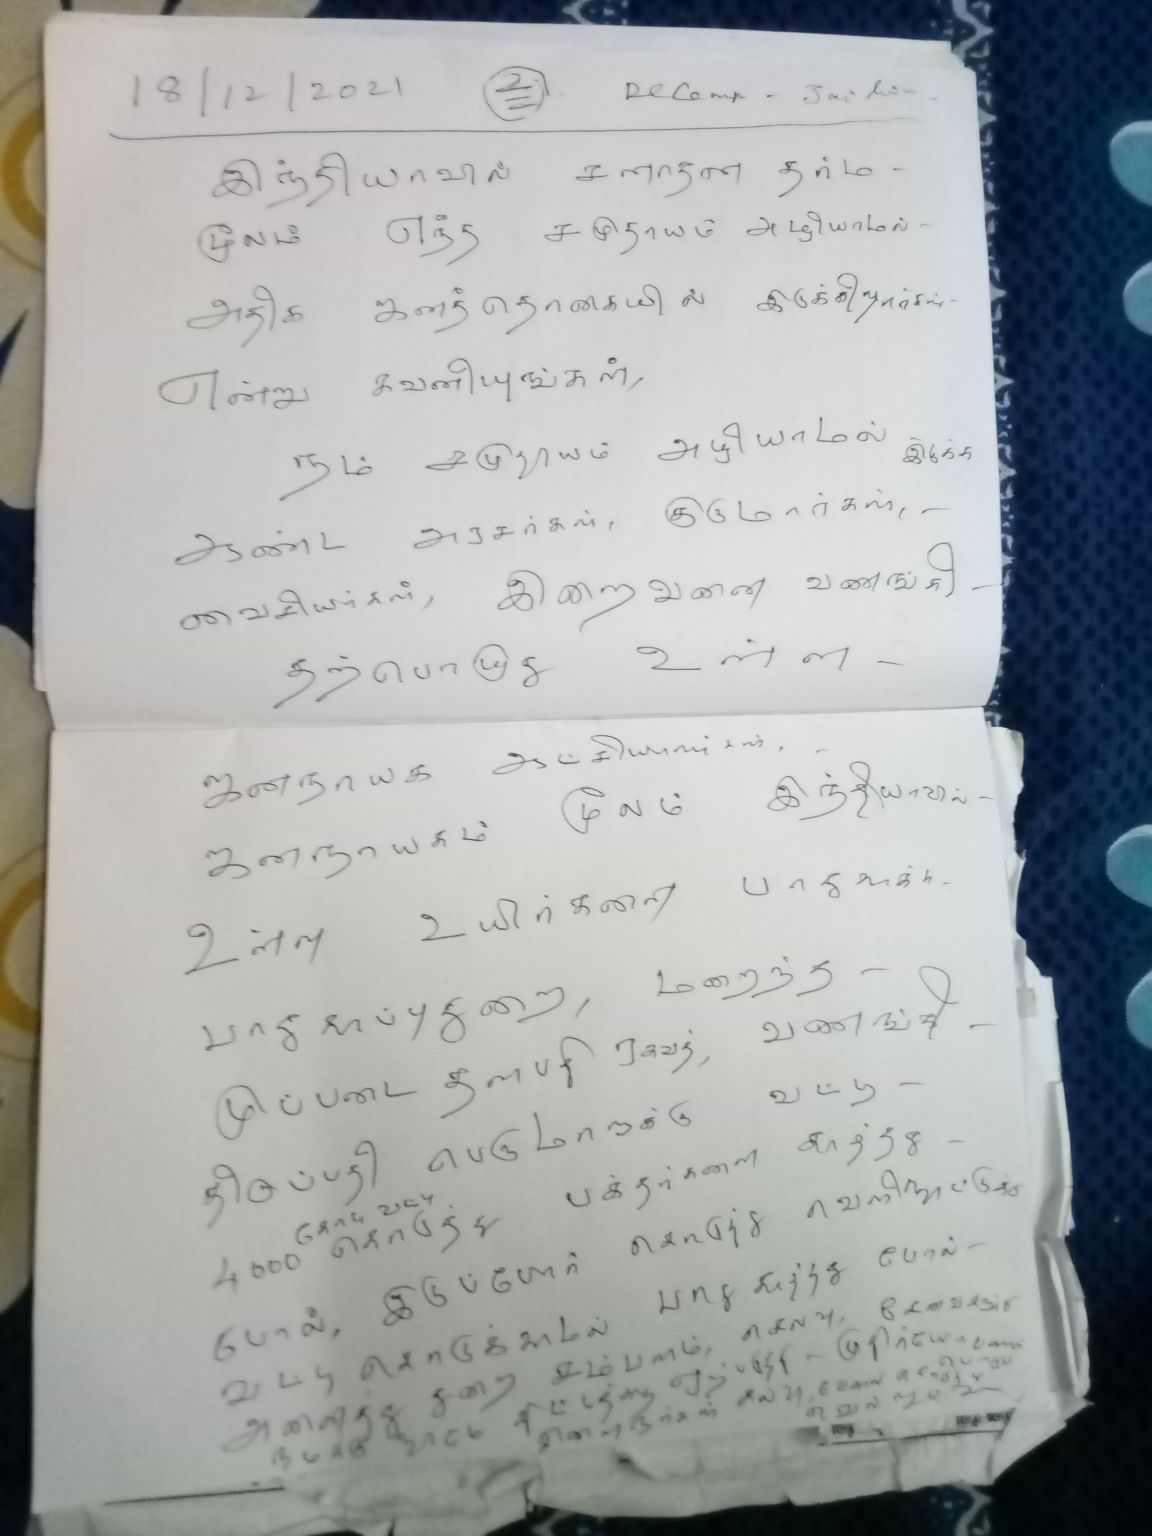 18/12/2021 2
இந்தியாவில் சனாதன தர்ம -
மூலம் எந்த சமுதாயம் அழியாமல் -
அதிக ஜனத்தொகையில் இருக்கிறார்கள் -
என்று கவனியுங்கள்,
நம் சமுதாயம் அழியாமல் இருக்க
ஆண்ட அரசர்கள், குருமார்கள், -
வைசியர்கள், இறைவனை வணங்கி -
தற்பொழுது உள்ள -
ஜனநாயக ஆட்சியாளர்கள், -
ஜனநாயகம் மூலம் இந்தியாவில் -
உள்ள உயிர்களை பாதுகாக்க -
பாதுகாப்புதுறை, மறைந்த -
முப்படை தளபதி ராவத், வணங்கி -
திருப்பதி பெருமாளுக்கு வட்டி -
கோடி வட்டி
4000 கொடுத்து பக்தர்களை காத்தது -
போல், இருப்போர் கொடுத்து வெளிநாட்டுக்கு
வட்டி கொடுக்காமல் பாதுகாத்து போல் -
அனைத்து துறை சம்பளம், செலவு,
நமக்கு நாமே திட்டத்தை ஏற்படுத்தி -